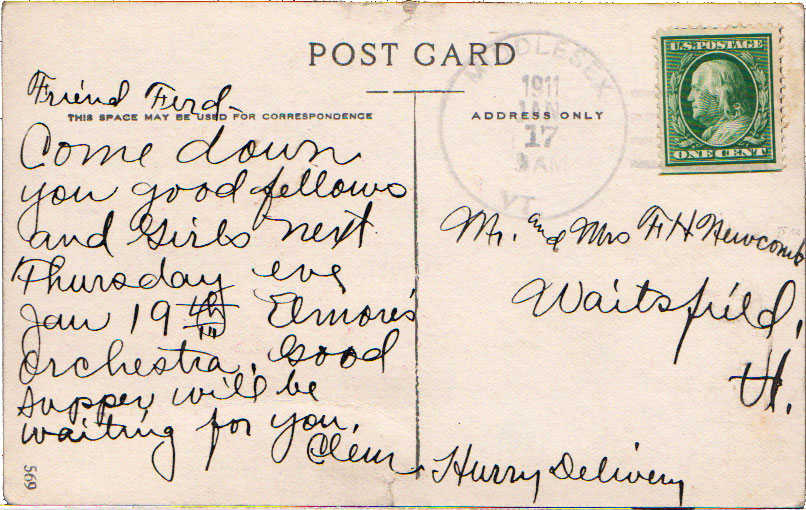 POST CARD
THIS SPACE MAY BE USED FOR CORRESPONDENCE
ADDRESS ONLY
U.S. POSTAGE
ONE CENT
MIDDLESEX
1911
JAN
17
VT.
Friend Ferd-
Come down
you good fellows
and Girls next
Thursday eve
Jan 19th Elmore's
Orchestra. Good
supper will be
waiting for you.
Clem
Mr. and Mrs F. H Newcomb
Waitsfield,
Vt.
Hurry Delivery
569